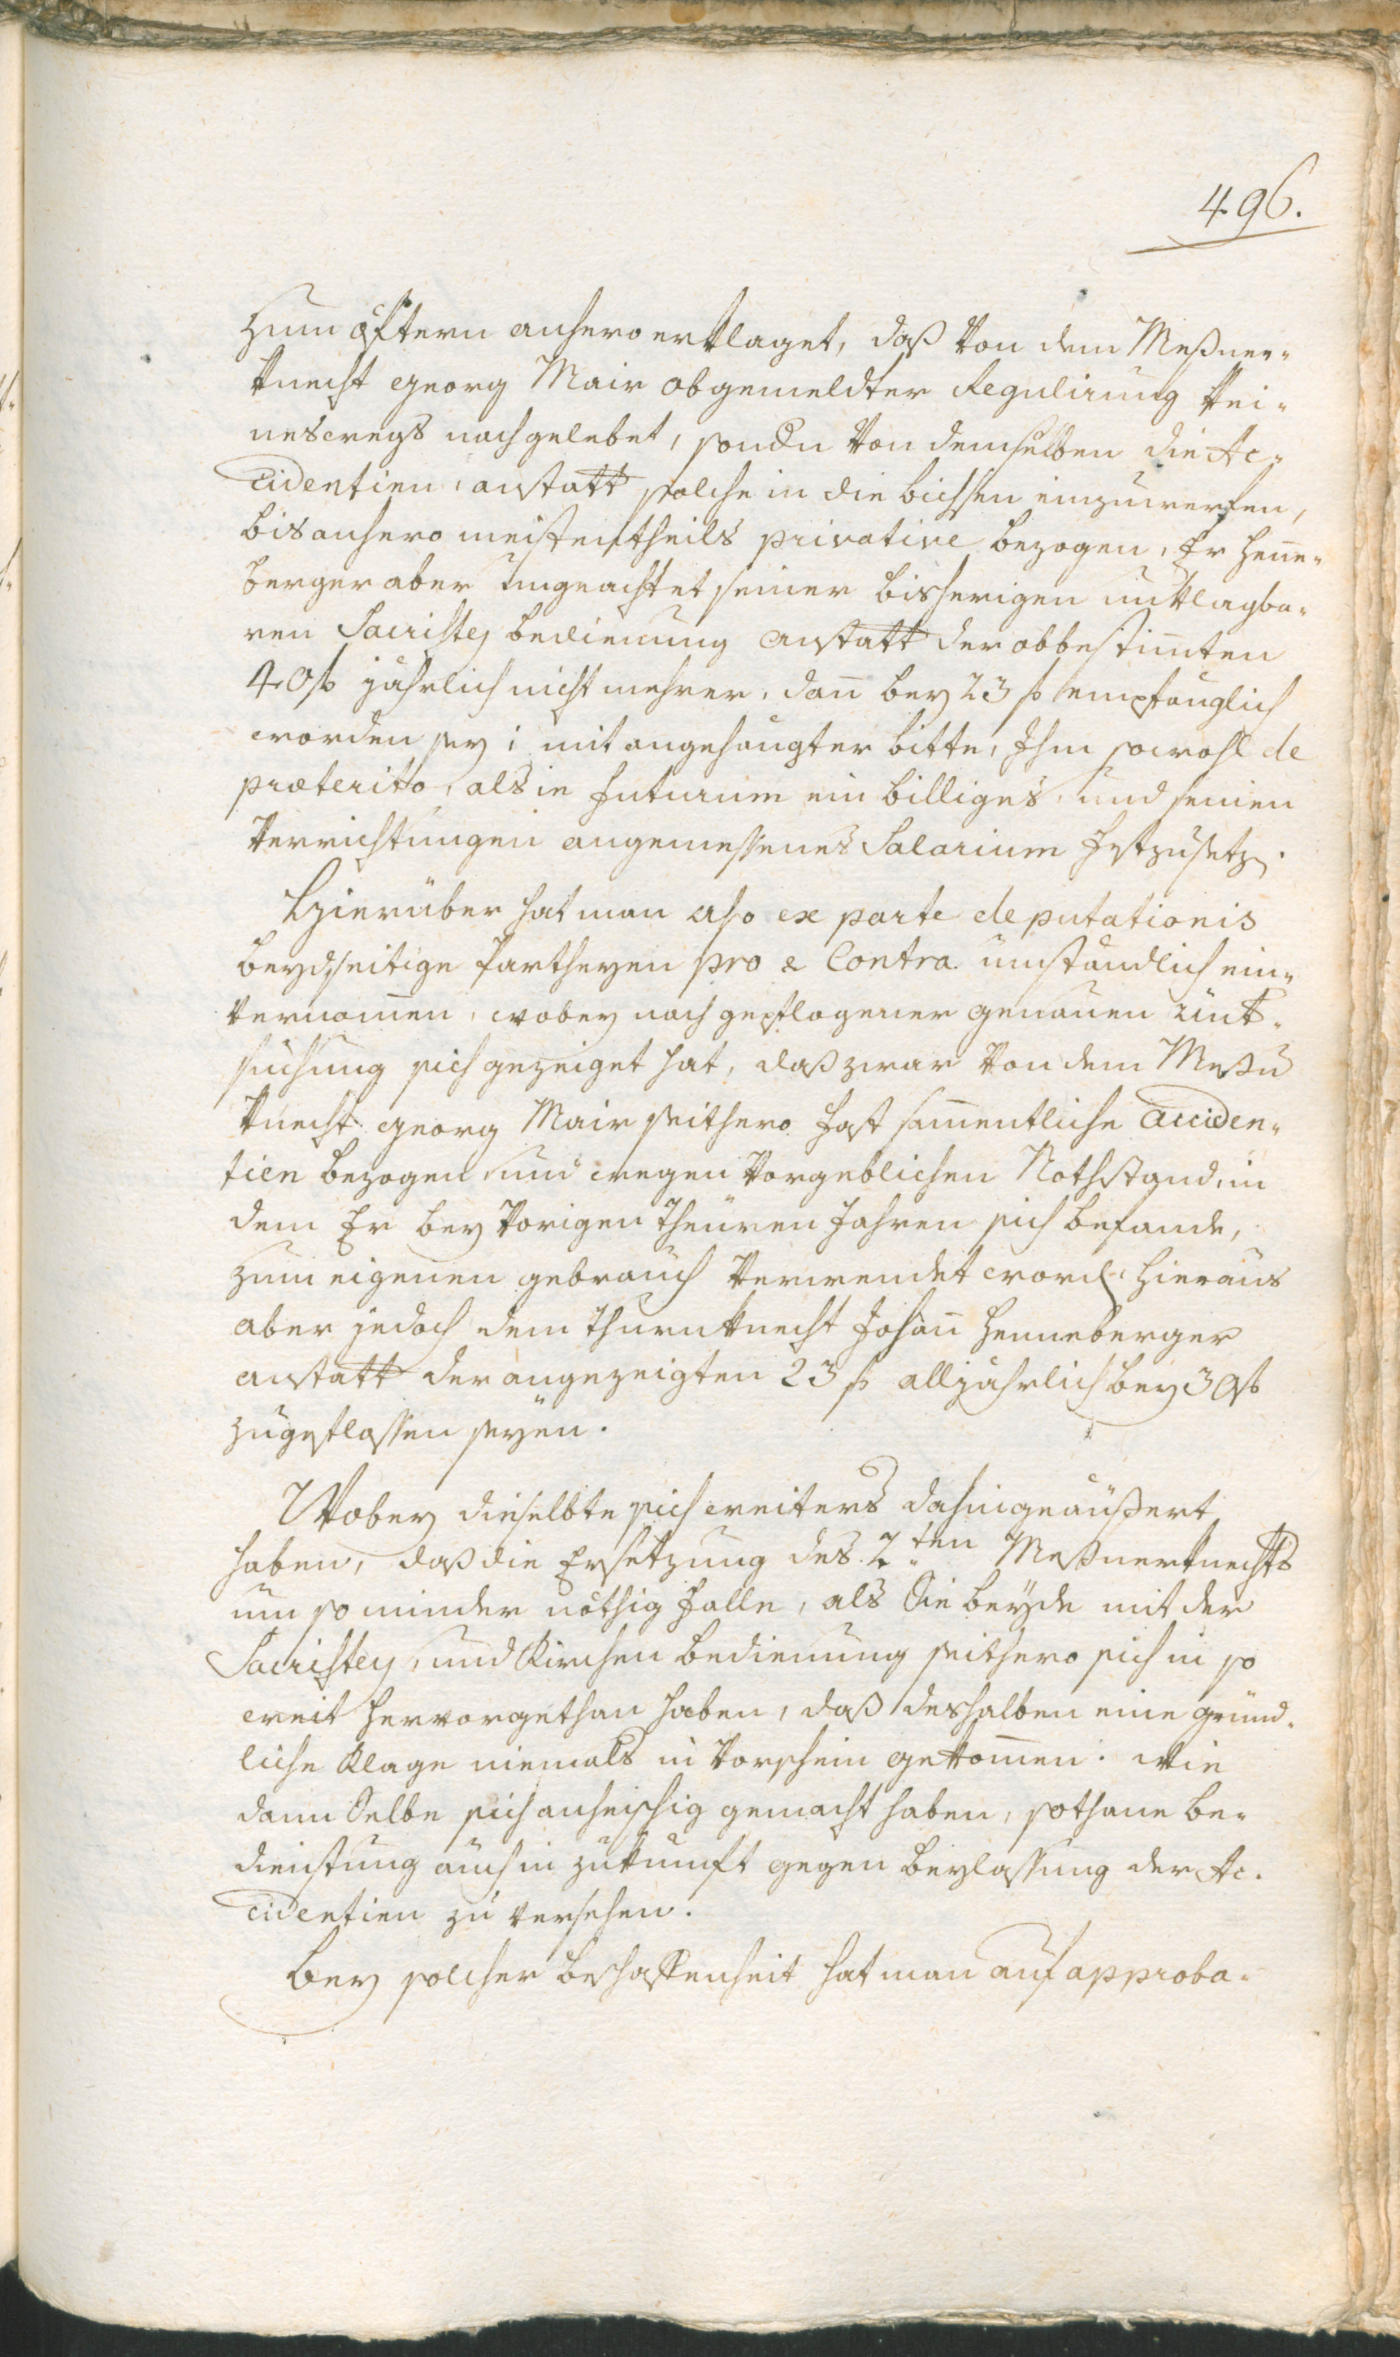 496.
zum öfftern anhero erklaget, daß von dem Meßner-
knecht Georg Mair obgemeldter Regulirung kei-
neswegs nachgelebet, sondn von demselben die Ac-
cidentien, anstatt solche in die bichsen einzuwerfen,
bis anhero meistentheils privative bezogen, Er Heñe-
berger aber ungeachtet seiner bisherigen unklagba-
ren Sacristey bedienung anstatt der obbestim̃ten
40 f jährlich nicht mehrer, dañ bey 23 f empfänglich
worden sey; mit angehängter bitte, Ihm sowohl de
præterito, als in futurum ein billiges, und seinen
Verrichtungen angemessenes Salarium festzusetzen.
Hierüber hat man also ex parte deputationis
beydseitige Partheyen pro & Contra umständlich ein-
vernom̃en, wobey nach gepflogener genauen Unt-
suchung sich gezeiget hat, daß zwar von dem Meßn
knecht Georg Mair seithero fast sam̃entliche Acciden-
tien bezogen und wegen vorgeblichen Nothstand, in
dem Er bey vorigen theuren Jahren sich befande,
zum eigenen gebrauch verwendet worden, hieraus
aber jedoch dem thurnknecht Johañ Henneberger
anstatt der angezeigten 23 f alljährlich bey 30 f
zugeflossen seyen.
Wobey dieselbte sich weiters dahin geäußert
haben, daß die Ersetzung des 2ten Meßnerknechts
um so minder nöthig falle, als Sie beyde mit der
Sacristey, und Kirchen bedienung seithero sich in so
weit hervorgethan haben, daß deshalben eine gründ-
liche Klage niemals in Vorschein gekom̃en. wie
dann Selbe sich anheischig gemacht haben, sothane be-
dienstung auch in zukunft gegen beylassung der Ac-
cidentien zu versehen.
Bey solcher beschaffenheit hat man auf approba-